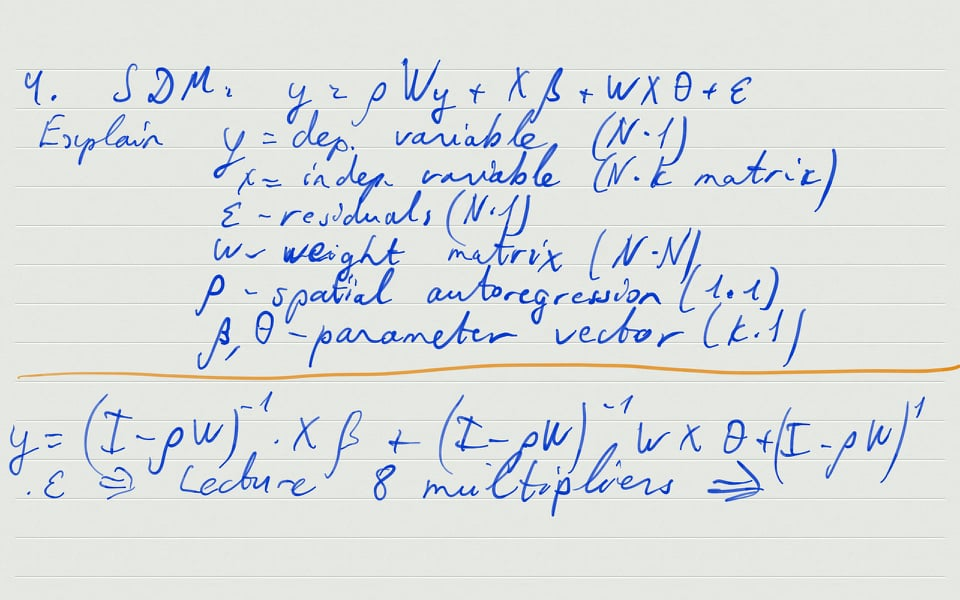 4. SDM. y = ρ Wy + X β + W X θ + ε
Explain y = dep. variable (N·1)
x = indep. variable (N·k matrix)
ε - residuals (N·1)
W - weight matrix (N·N)
ρ - spatial autoregression (1·1)
β, θ - parameter vector (k·1)
y = (I - ρW)⁻¹ · X β + (I - ρW)⁻¹ W X θ + (I - ρW)¹
· ε ⇒ Lecture 8 multipliers ⇒